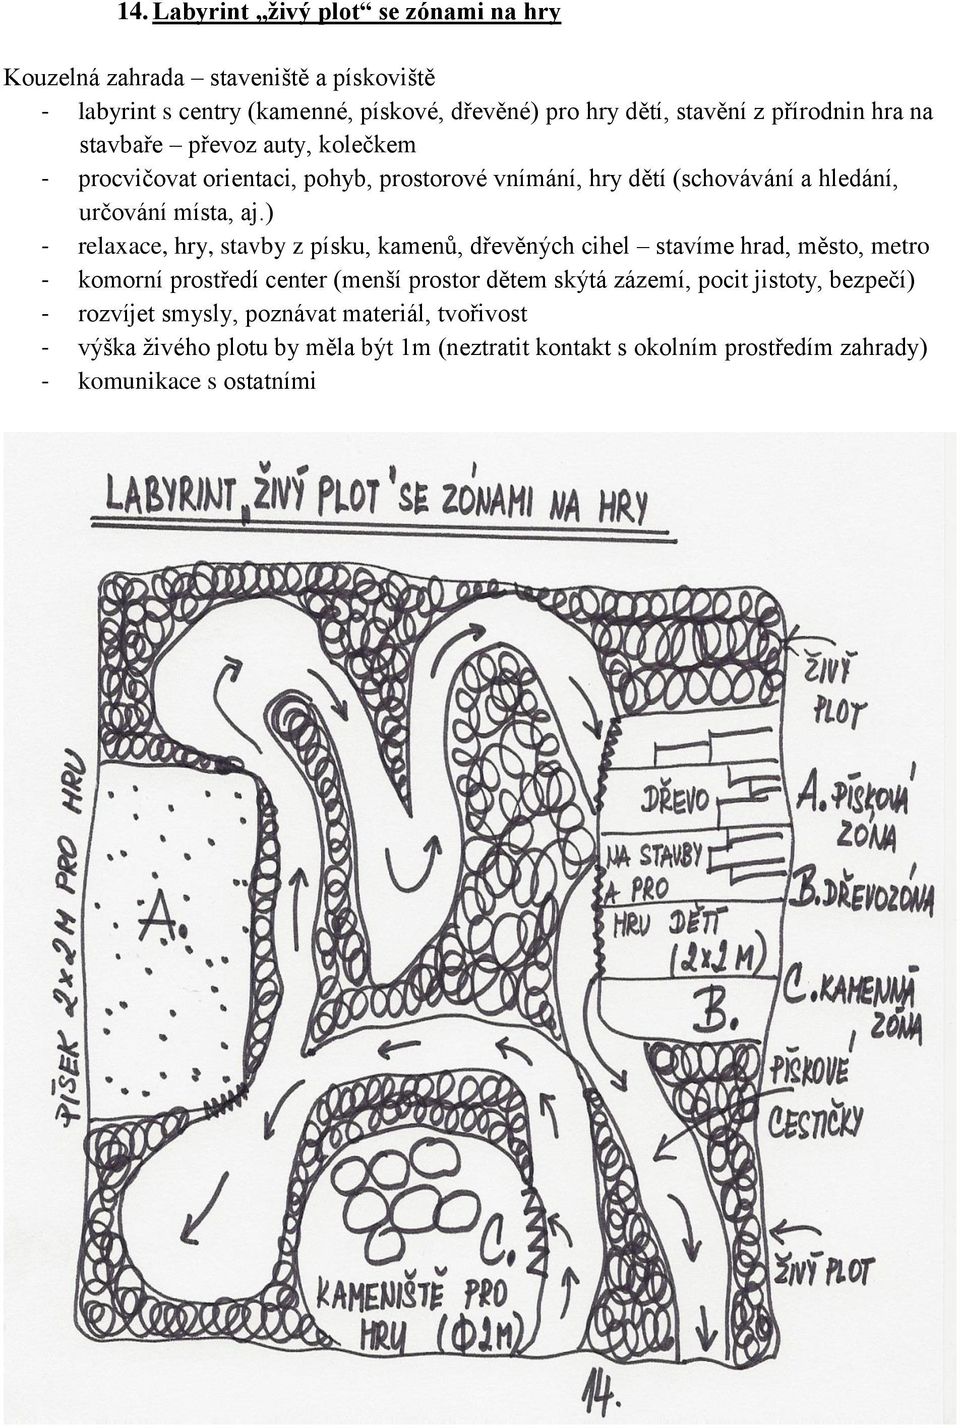 14. Labyrint „živý plot“ se zónami na hry
Kouzelná zahrada – staveniště a pískoviště
- labyrint s centry (kamenné, pískové, dřevěné) pro hry dětí, stavění z přírodnin hra na
stavbaře – převoz auty, kolečkem
- procvičovat orientaci, pohyb, prostorové vnímání, hry dětí (schovávání a hledání,
určování místa, aj.)
- relaxace, hry, stavby z písku, kamenů, dřevěných cihel – stavíme hrad, město, metro
- komorní prostředí center (menší prostor dětem skýtá zázemí, pocit jistoty, bezpečí)
- rozvíjet smysly, poznávat materiál, tvořivost
- výška živého plotu by měla být 1m (neztratit kontakt s okolním prostředím zahrady)
- komunikace s ostatními
LABYRINT „ŽIVÝ PLOT‘ SE ZÓNAMI NA HRY
ŽIVÝ
PLOT
PÍSEK 2x2M PRO HRU
A.
DŘEVO
NA STAVBY
A PRO
HRU DĚTÍ
(2x2 M)
B.
A. PÍSKOVÁ
ZÓNA
B. DŘEVOZÓNA
C. KAMENNÁ
ZÓNA
PÍSKOVÉ
CESTIČKY
C.
KAMENIŠTĚ PRO
HRU (Φ2M)
ŽIVÝ PLOT
14.